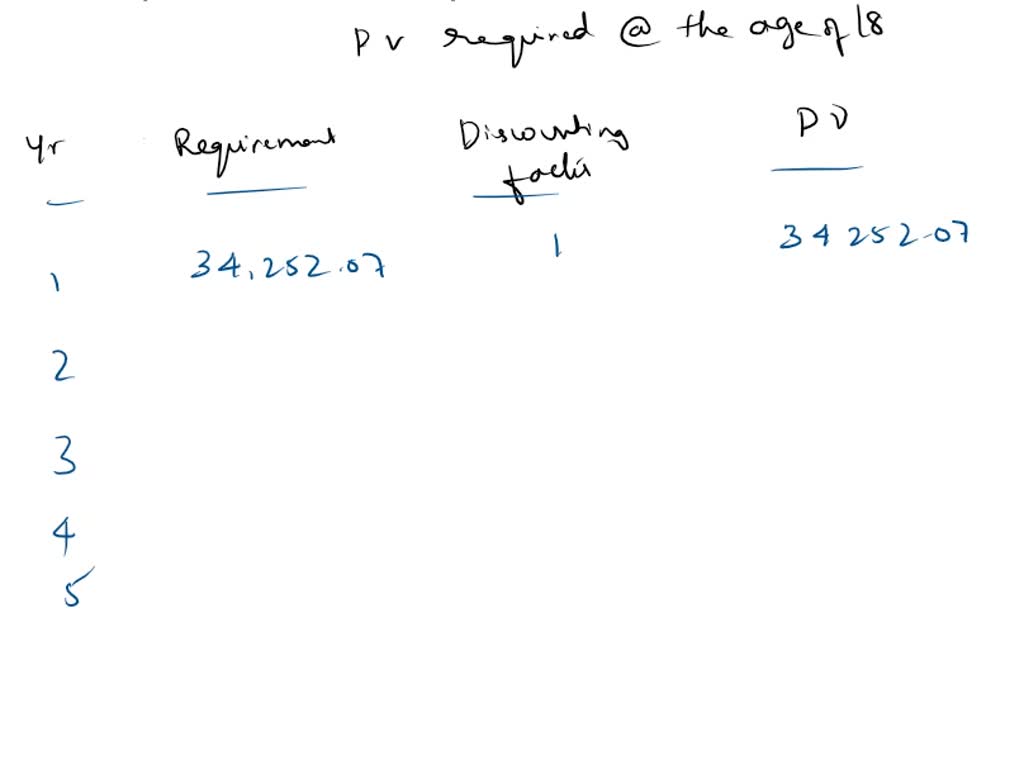 PV required @ the age of 18
Yr Requirement Discounting factor PV
1 34,252.07 1 34252.07
2
3
4
5